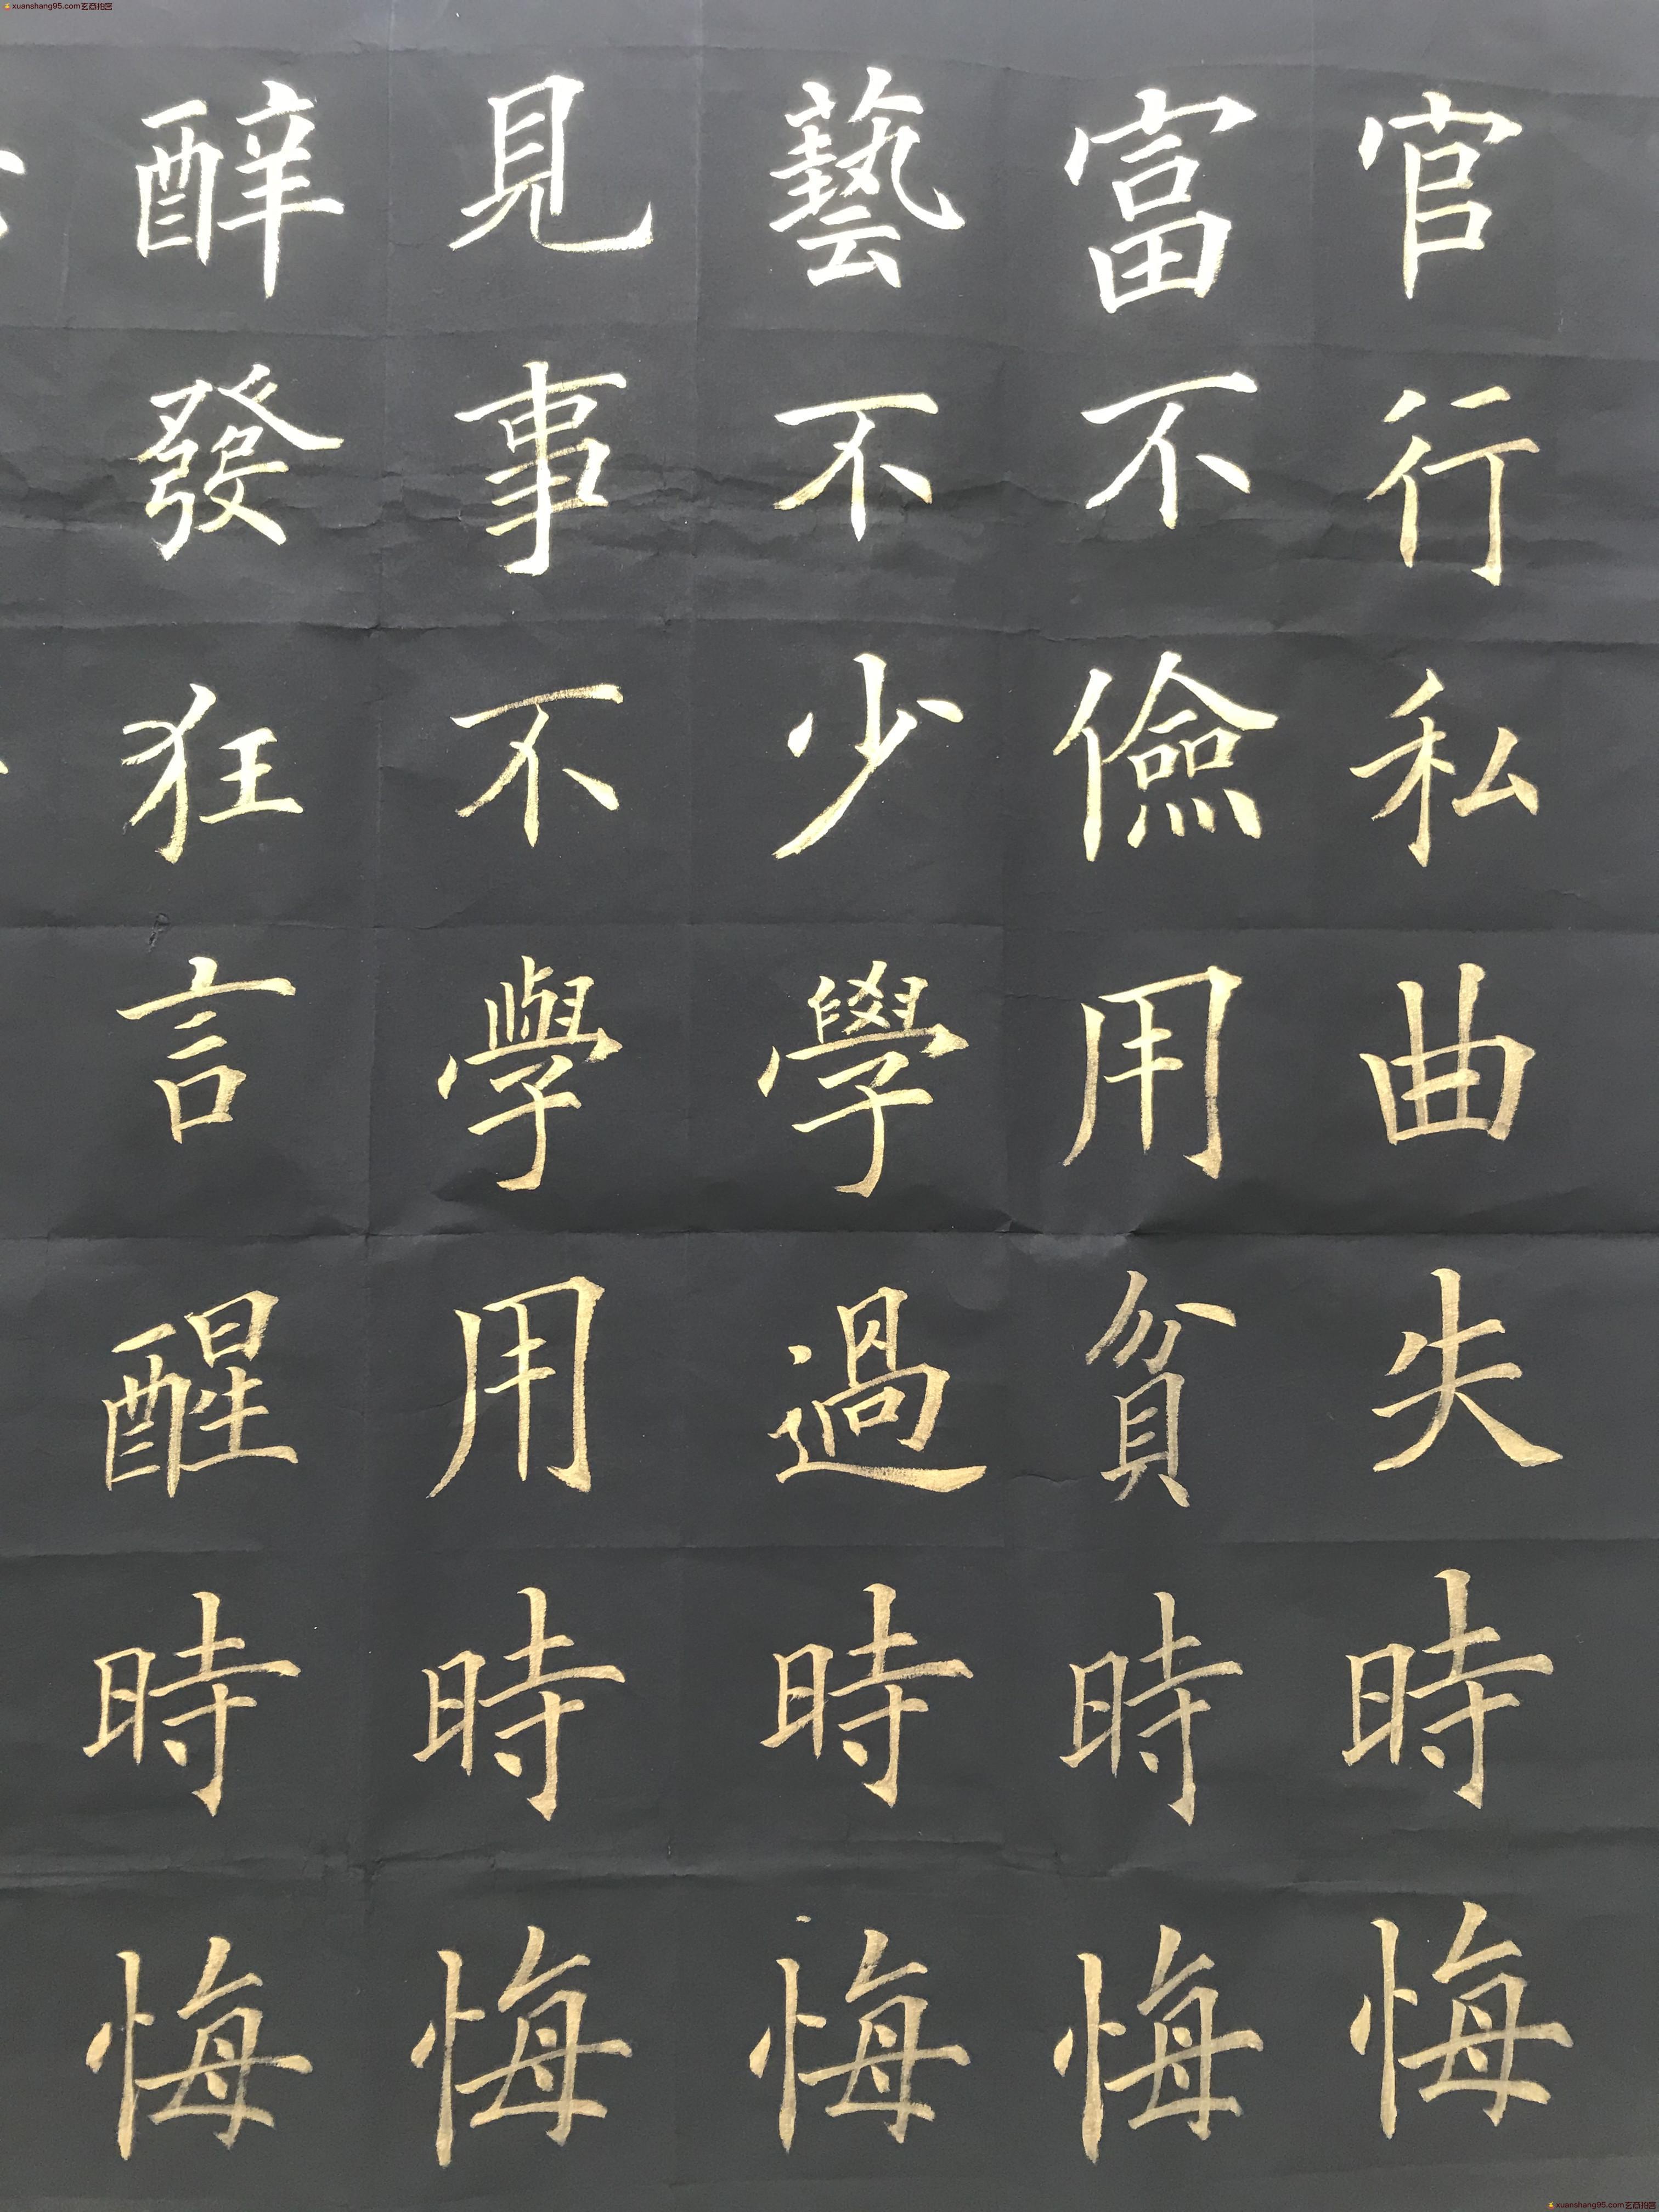 官行私曲失時悔
富不儉用貧時悔
藝不少學過時悔
見事不學用時悔
醉發狂言醒時悔
xuanshang95.com玄商拍图
xuanshang95.com玄商拍图